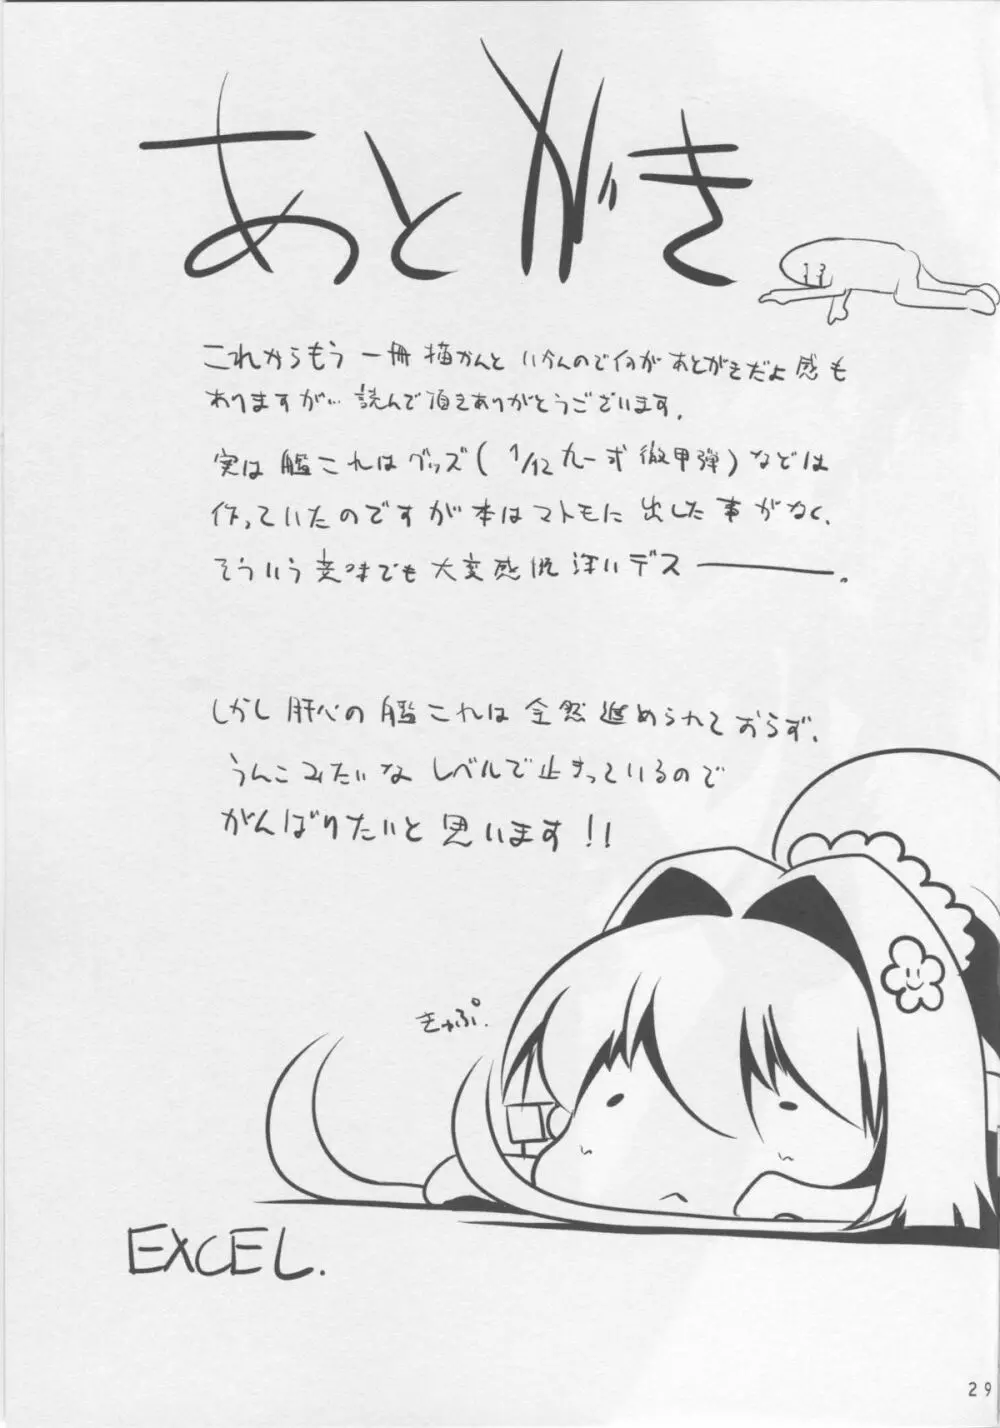 あとがき
これからもう一冊描かんといかんので何があとがきだよ感も
ありますが… 読んで頂きありがとうございます。
実は艦これはグッズ(1/12九一式徹甲弾)などは
作っていたのですが本はマトモに出した事がなく、
そういう意味でも大変感慨深いデスーーー。
しかし肝心の艦これは全然進められておらず、
うんこみたいなレベルで止まっているので
がんばりたいと思います!!
きゅぷ.
EXCEL.
29